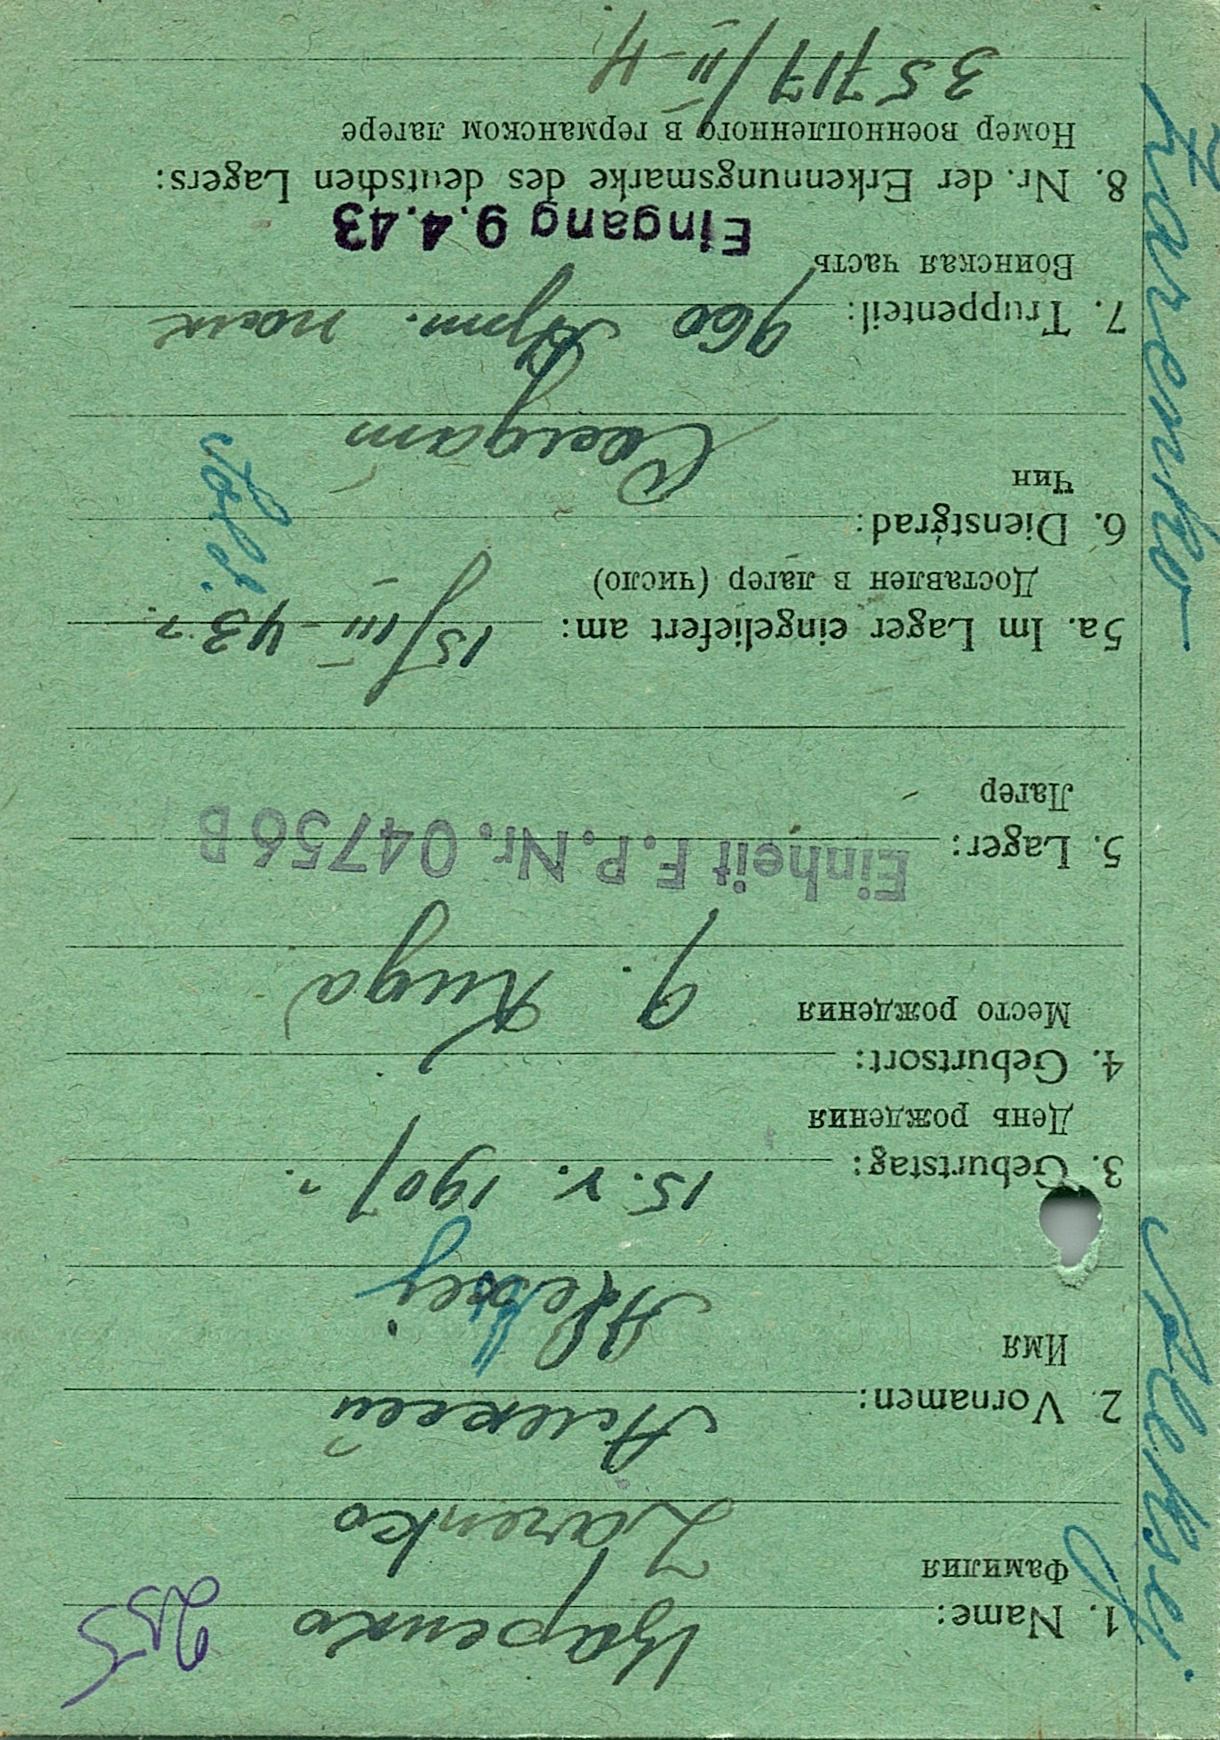 255
1. Name: Царенко
Фамилия
Zarenko
2. Vornamen: Алексей
Имя
Aleksej
3. Geburtstag: 15.V.1907 г.
День рождения
4. Geburtsort:
Место рождения
5. Lager: Einheit F.P.Nr. 04756B
Лагер
5a. Im Lager eingeliefert am: 15/III-43 г.
Доставлен в лагер (число)
6. Dienstgrad:
Чин
Солдат
7. Truppenteil: 960 Арт. полк
Воинская часть
Eingang 9.4.43
8. Nr. der Erkennungsmarke des deutschen Lagers:
Номер военнопленного в германском лагере
35717/II-H
Zarenko Aleksej